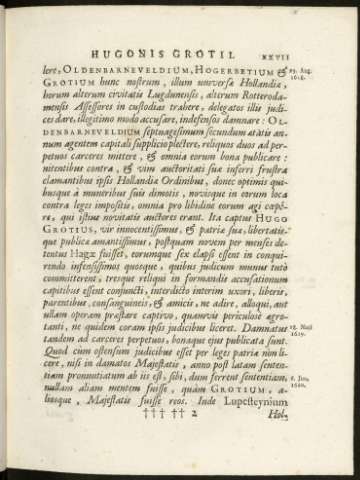 HUGONIS GROTII. XXVII
lere, OLDENBARNEVELDIUM, HOGERBETIUM & 29. Aug. 1618.
GROTIUM hunc nostrum, illum universæ Hollandiæ,
horum alterum civitatis Lugdunensis, alterum Rotteroda-
mensis Assessores in custodias trahere, delegatos illis judi-
ces dare, illegitimo modo accusare, indefensos damnare: OL-
DENBARNEVELDIUM septuagesimum secundum ætatis an-
num agentem capitali supplicio plectere, reliquos duos ad per-
petuos carceres mittere, & omnia eorum bona publicare:
nitentibus contra, & vim auctoritati suæ inferri frustra
clamantibus ipsis Hollandiæ Ordinibus, donec optimis qui-
busque à muneribus suis dimotis, novisque in eorum loca
contra leges impositis, omnia pro libidine eorum agi cœpê-
re, qui istius novitatis auctores erant. Ita captus HUGO
GROTIUS, vir innocentissimus, & patriæ suæ, libertatis-
que publicæ amantissimus, postquam novem per menses de-
tentus Hagæ fuisset, eorumque sex elapsi essent in conqui-
rendo infensissimis quosque, quibus judicum munus tutò
committerent, tresque reliqui in formandis accusationum
capitibus essent conjuncti, interdicto interim uxori, liberis,
parentibus, consanguineis, & amicis, ne adire, alloqui, aut
ullam operam præstare captivo, quamvis periculosè ægro-
tanti, ne quidem coram ipsis judicibus liceret. Damnatus 18. Maii 1619.
tandem ad carceres perpetuos, bonaque ejus publicata sunt.
Quod cùm ostensum judicibus esset per leges patriæ non li-
cere, nisi in damatos Majestatis, anno post latam senten-
tiam pronuntiatum ab iis est, sibi, dum ferrent sententiam, 1620.
nullam aliam mentem fuisse, quàm GROTIUM, a-
liosque, Majestatis fuisse reos. Inde Lupesteynium
††† †† 2 Hol-